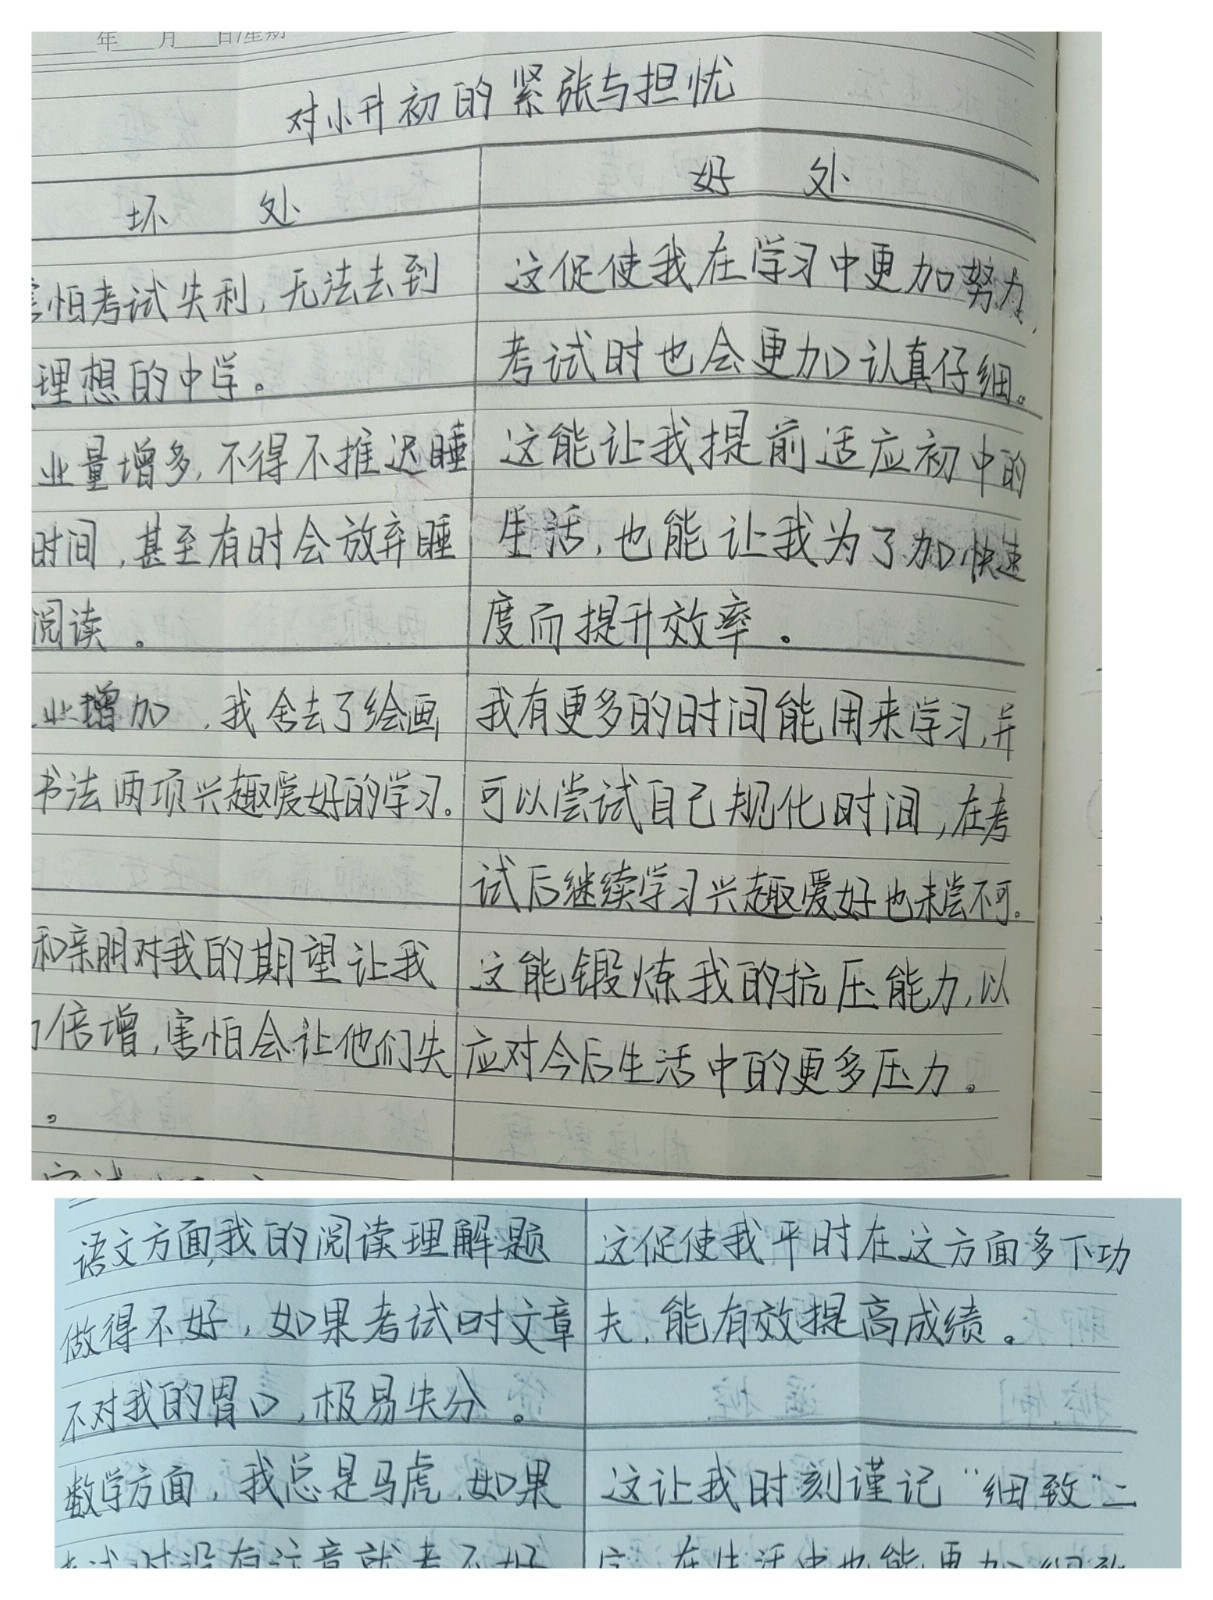 年 月 日/星期
对小升初的紧张与担忧
坏 处
好 处
害怕考试失利，无法去到
理想的中学。
这促使我在学习中更加努力，
考试时也会更加认真仔细。
业量增多，不得不推迟睡
时间，甚至有时会放弃睡
阅读。
这能让我提前适应初中的
生活，也能让我为了加快速
度而提升效率。
业增加，我舍去了绘画
书法两项兴趣爱好的学习。
我有更多的时间能用来学习，并
可以尝试自己规化时间，在考
试后继续学习兴趣爱好也未尝不可。
和亲朋对我的期望让我
倍增，害怕会让他们失
。
这能锻炼我的抗压能力，以
应对今后生活中的更多压力。
语文方面，我的阅读理解题
做得不好，如果考试时文章
不对我的胃口，极易失分。
这促使我平时在这方面多下功
夫，能有效提高成绩。
数学方面，我总是马虎，如果
考试时没有注意就考不好
这让我时刻谨记“细致”二
字，在生活中也能更加细致